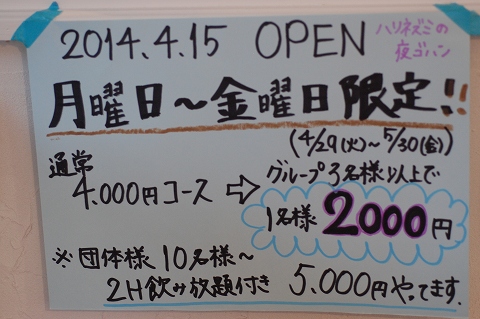 2014.4.15 OPEN
ハリネズミの
夜ゴハン
月曜日～金曜日限定!!
(4/29(火)～5/30(金))
通常
4.000円コース ⇨ グループ3名様以上で
1名様 2000円
※団体様 10名様～
2H飲み放題付き 5.000円やってます.